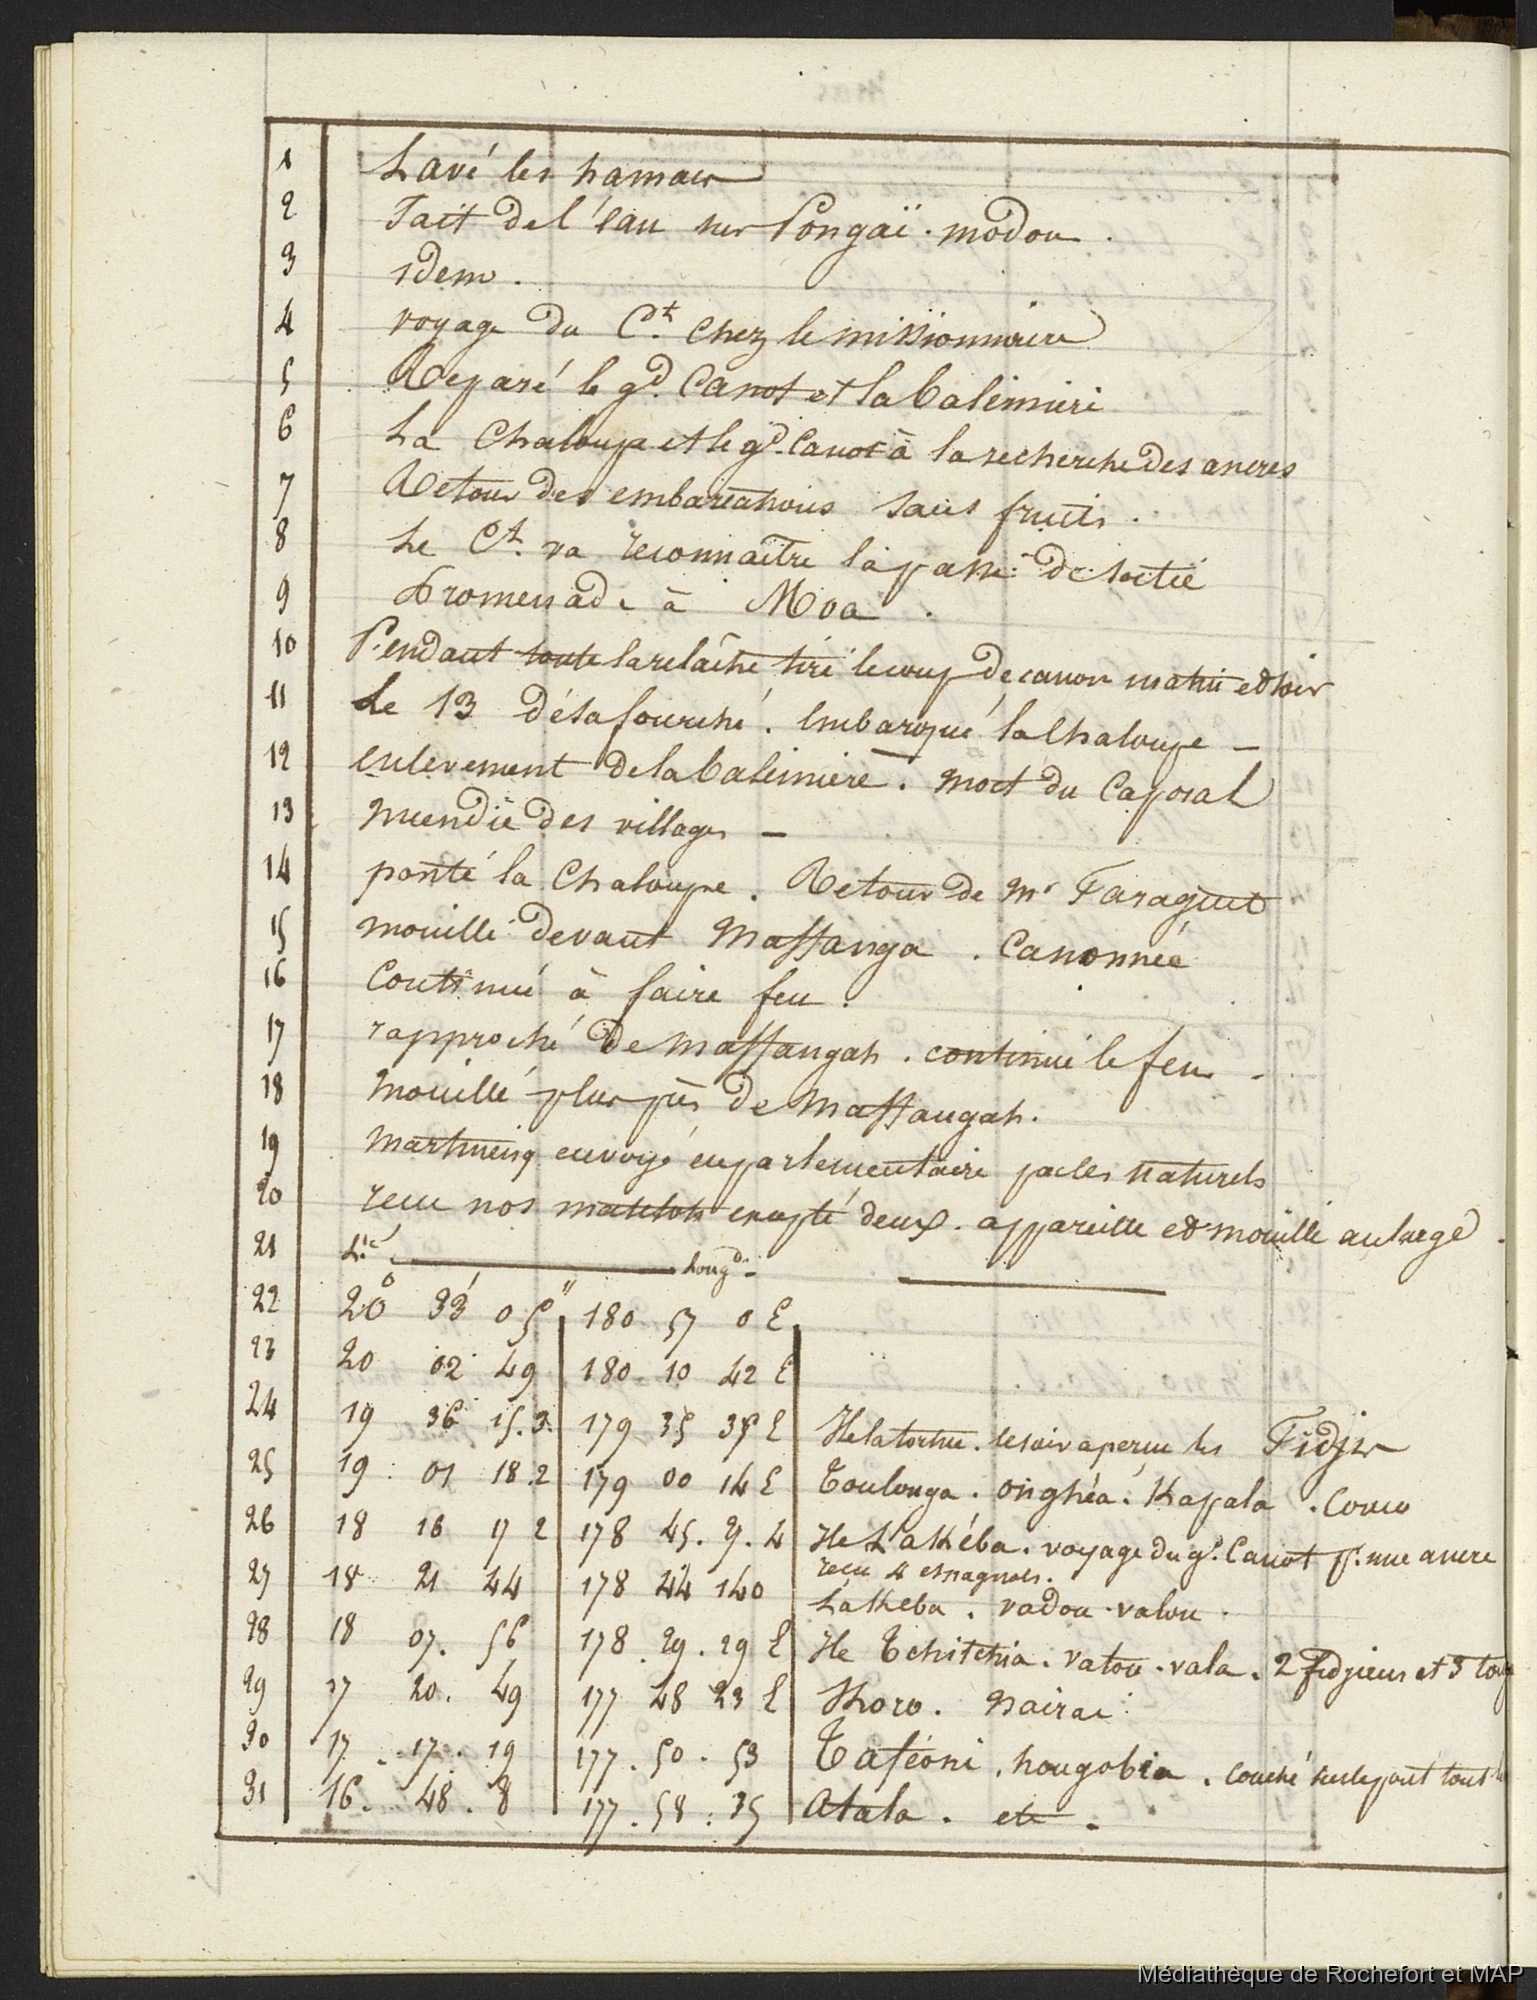 1 Lavé les hamacs
2 Fait de l'eau sur Pongaï-modou.
3 idem.
4 voyage du C.t chez le missionnaire
5 Reparé le g.d Canot et la baleinière
6 La Chaloupe et le g.d Canot à la recherche des ancres
7 Retour des embarcations sans fruits.
8 Le C.t va reconnaître la passe de sortie
9 Promenade à Moa.
10 Pendant toute la relâche tiré le coup de canon matin et soir
11 Le 13 désafourché. embarqué la Chaloupe —
12 enlevement de la baleinière. mort du Caporal
13 incendie des villages —
14 ponté la Chaloupe. Retour de Mr Faraguet
15 mouillé devant Maffanga. Canonnée
16 Continué à faire feu.
17 rapproché de Maffangah. continué le feu.
18 Mouillé plus près de Maffangah.
19 Martineng envoyé en parlementaire par les naturels
20 recu nos matelots excepté deux. appareillé et mouillé au large.
21 L.de — Long.de —
22 20° 33' 05" 180 57 0 E
23 20 02 49 180 10 42 E
24 19 36 15.3. 179 35 35 E Ile latortue. le soir aperçu les Fidjis
25 19 01 18.2 179 00 14 E Toulonga. Onghéa. Kapala.
26 18 16 17 2 178 45. 2. 4 Ile Lakéba. voyage du g.d Canot p.r une ancre
recu 4 espagnols.
27 18 21 44 178 44 140 Lakéba. vadou-valou.
28 18 07. 56 178. 29. 29 E Ile Tchitchia. Vatou-vala. 2 fidjiens et 3
29 17 20. 49 177 48 23 E Khoro. Nairai
30 17. 17. 19 177. 50. 53 Taféoni. hougobia. couché sur le pont tout
31 16. 48. 8 177. 58. 35 Atala. etc.
Médiathèque de Rochefort et MAP